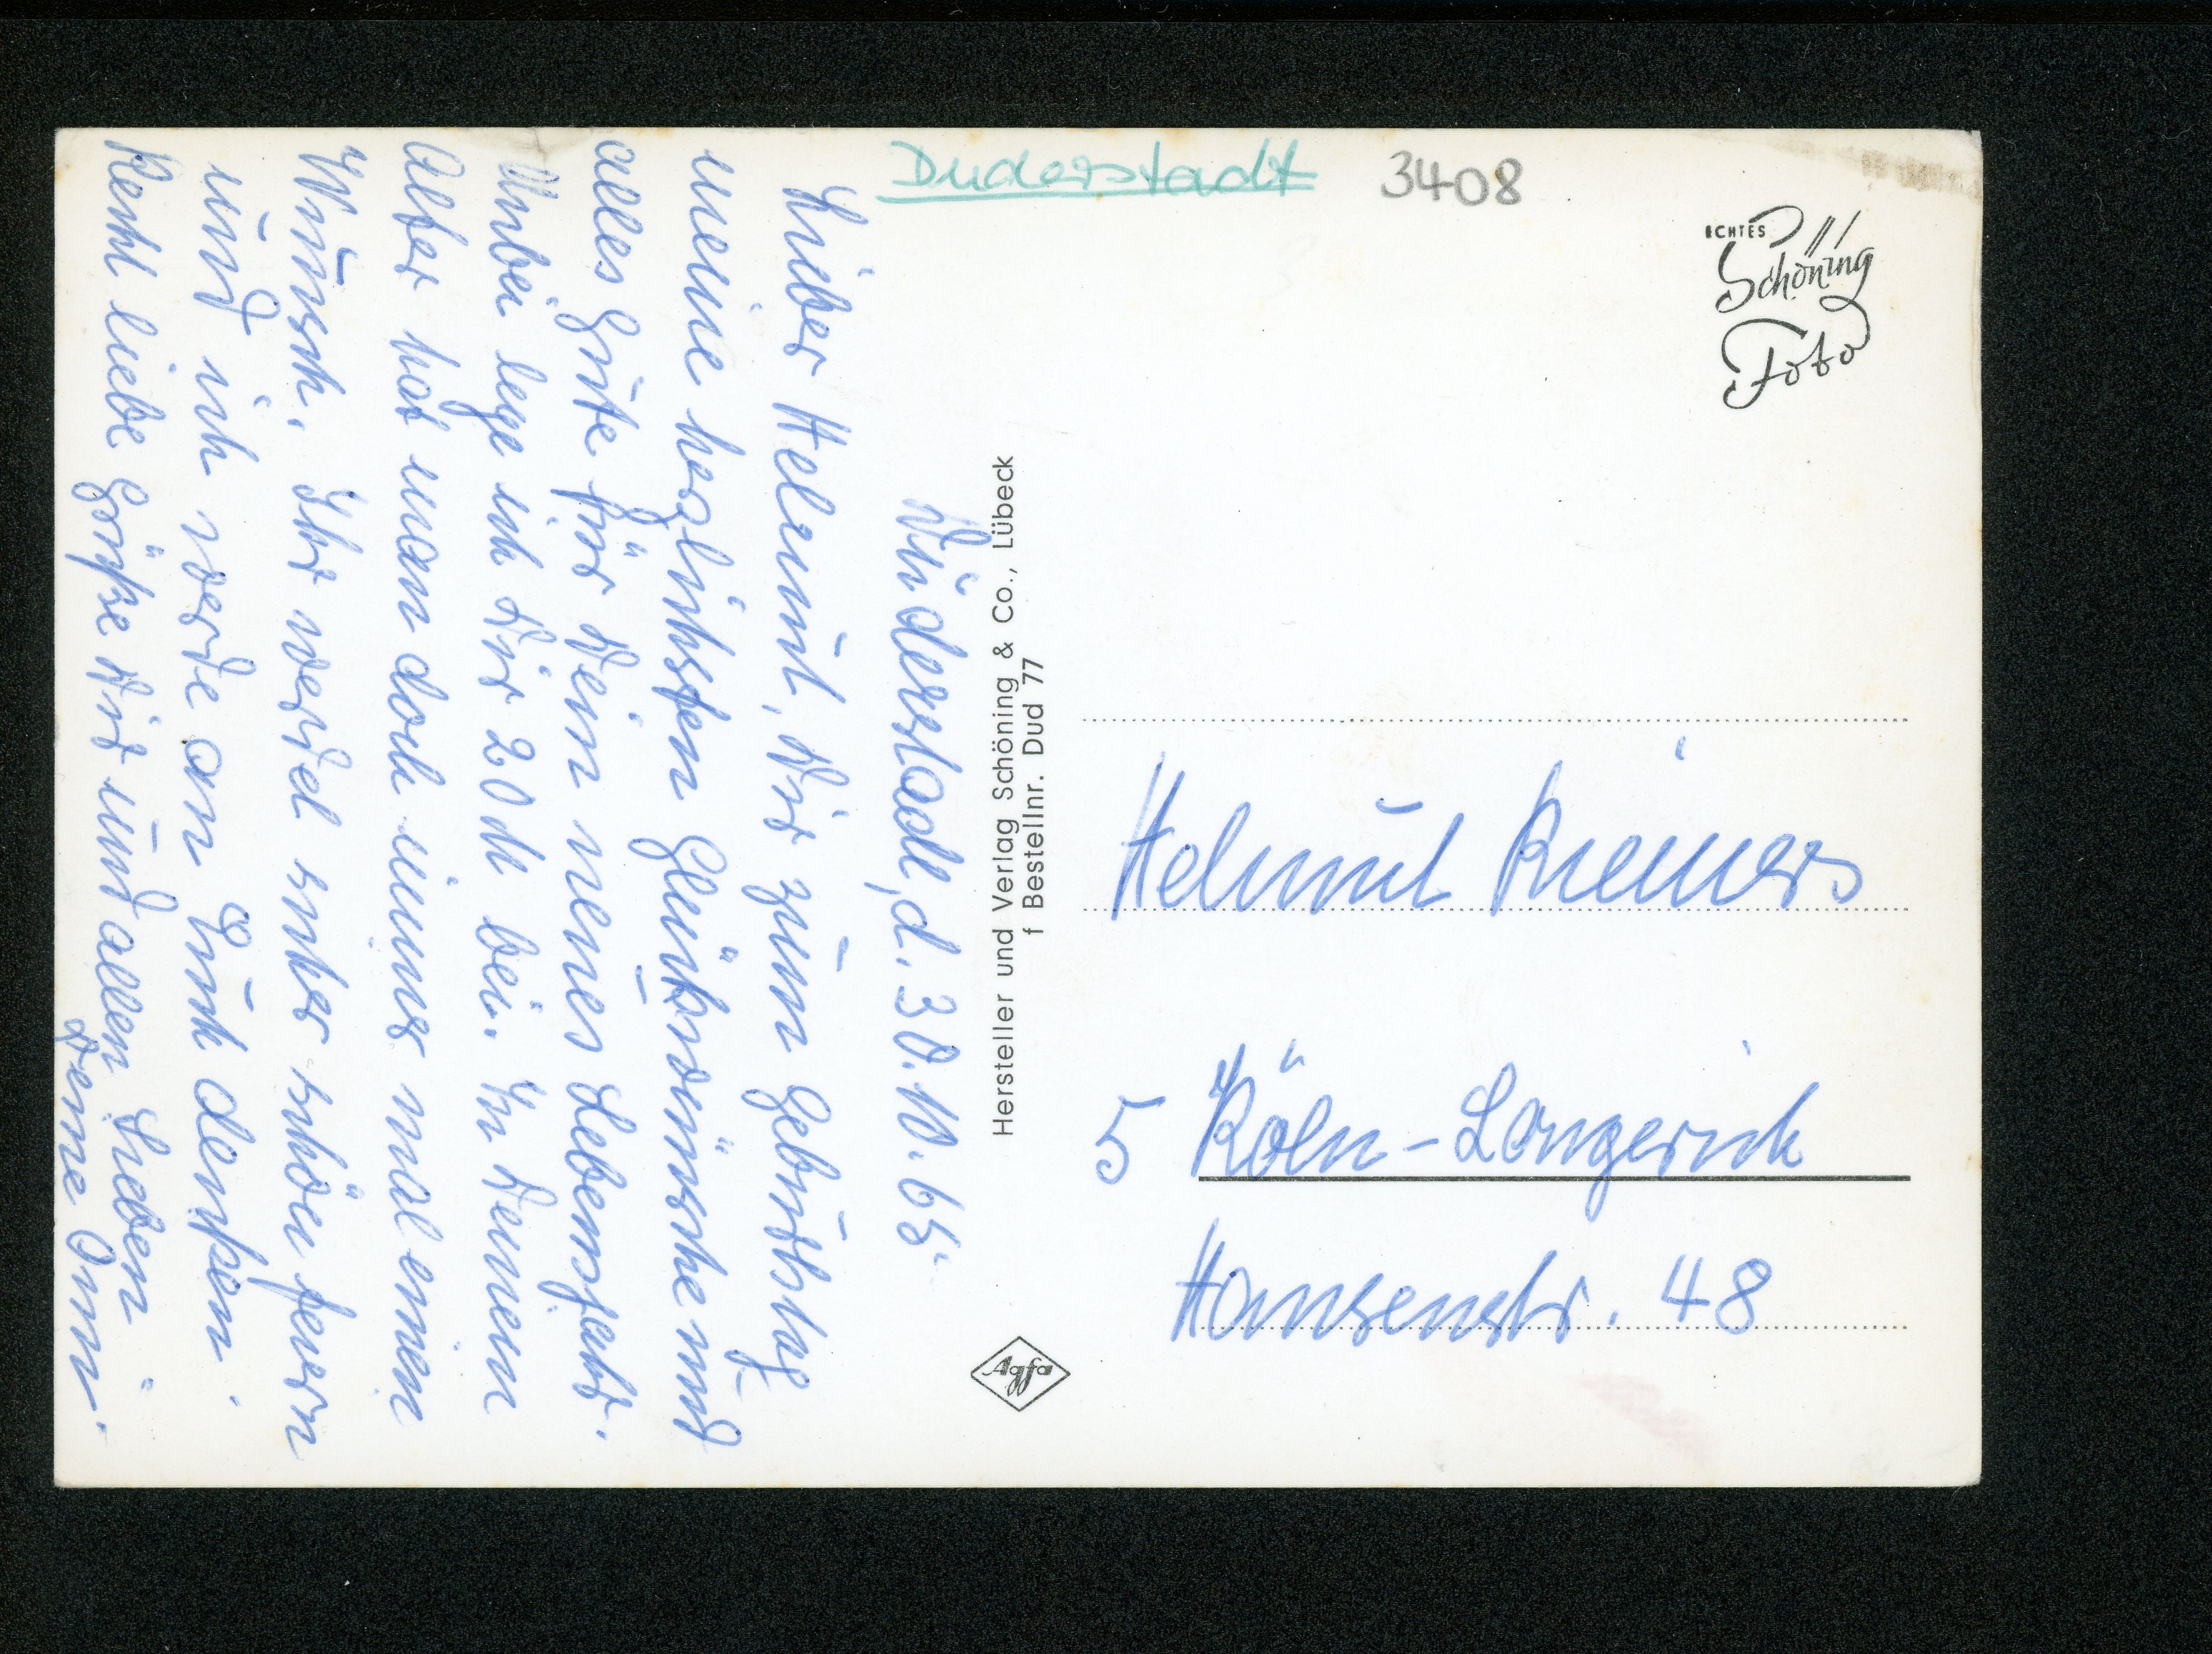 Duderstadt 3408
ECHTES
Schöning
Foto
Duderstadt, d. 30.10.65
Lieber Helmut, Dir zum Geburtstag
meine herzlichsten Glückwünsche und
alles Gute für Dein neues Lebensjahr.
Anbei lege ich Dir 20 DM bei. In Deinem
Alter hat man doch immer mal einen
Wunsch. Ihr werdet sicher schön feiern
und ich werde an Euch denken.
Recht liebe Grüße Dir und allen Lieben
Deine Omi.
Hersteller und Verlag Schöning & Co., Lübeck
f Bestellnr. Dud 77
Agfa
Helmut Riemers
5 Köln-Longerich
Hansenstr. 48